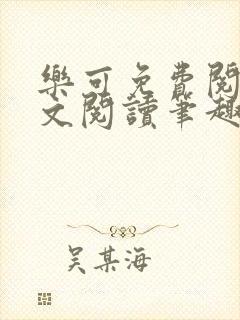 樂可免費閱
文閱讀筆趣
吴某海